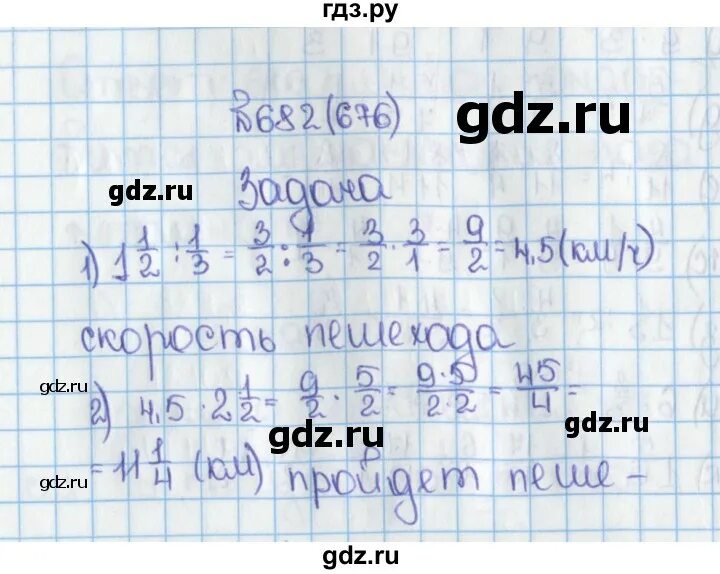 гдз.ру
№682(676)
gdz.ru
gdz.ru
Задача
1) 1 1/2 : 1/3 = 3/2 : 1/3 = 3/2 · 3/1 = 9/2 = 4,5 (км/ч)
скорость пешехода
gdz.ru
2) 4,5 · 2 1/2 = 9/2 · 5/2 = 9·5/2·2 = 45/4 =
gdz.ru
gdz.ru
= 11 1/4 (км) пройдет пеше -
gdz.ru
gdz.ru